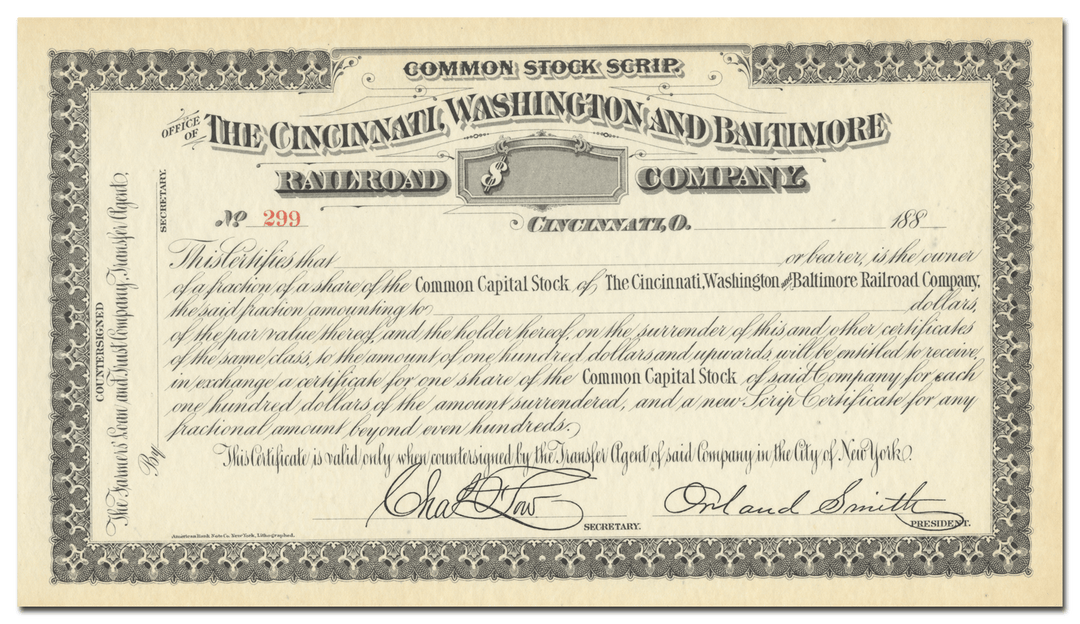 COMMON STOCK SCRIP.
OFFICE OF
THE CINCINNATI, WASHINGTON AND BALTIMORE
RAILROAD $ COMPANY.
No 299
CINCINNATI, O. 188
This Certifies that or bearer, is the owner
of a fraction of a share of the Common Capital Stock of The Cincinnati, Washington and Baltimore Railroad Company,
the said fraction amounting to dollars,
of the par value thereof, and the holder hereof, on the surrender of this and other certificates
of the same class, to the amount of one hundred dollars and upwards, will be entitled to receive,
in exchange a certificate for one share of the Common Capital Stock of said Company for each
one hundred dollars of the amount surrendered, and a new Scrip Certificate for any
fractional amount beyond even hundreds.
This Certificate is valid only when countersigned by the Transfer Agent of said Company in the City of New York.
Chas F Low
SECRETARY.
Orland Smith
PRESIDENT.
American Bank Note Co. New York, Lithographed.
COUNTERSIGNED
The Farmers' Loan and Trust Company, Transfer Agent,
By
SECRETARY.